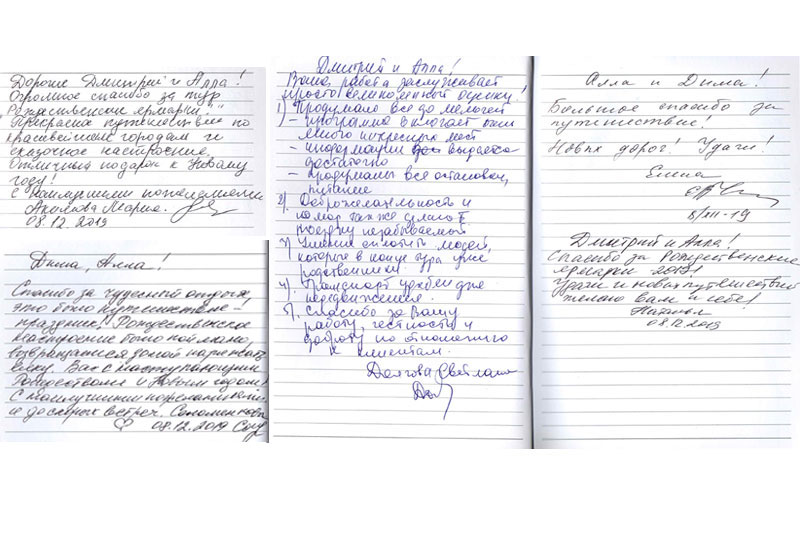 Дорогие Дмитрий и Алла!
Огромное спасибо за тур
"Рождественские ярмарки"
Прекрасное путешествие по
красивейшим городам и
сказочное настроение.
Отличный подарок к Новому
году!
С наилучшими пожеланиями
Мария.
08.12.2019
Дима, Алла!
Спасибо за чудесный отдых,
это было путешествие –
праздник! Рождественское
настроение было поймано,
возвращаемся домой наряжать
ёлку. Вас с наступающим
Рождеством и Новым годом!
С наилучшими пожеланиями
и до скорых встреч.
08.12.2019
Дмитрий и Алла!
Ваша работа заслуживает
просто великолепной оценку!
1) Продумано все до мелочей
- программа включает очень
много интересных мест
- информации выдается
достаточно
- продуманы все остановки,
питание
2). Доброжелательность и
юмор также сделали
поездку незабываемой
3) Умение сплотить людей,
которые в конце тура уже
родственники.
4). Транспорт удобен для
передвижения.
5). Спасибо за Вашу
работу, честность и
доброту по отношению
к клиентам.
Долгова Светлана
Алла и Дима!
Большое спасибо за
путешествие!
Новых дорог! Удачи!
Елена
8/XII-19
Дмитрий и Алла!
Спасибо за Рождественские
ярмарки 2019!
Удачи и новых путешествий
желаю вам и себе!
Наталья
08.12.2019